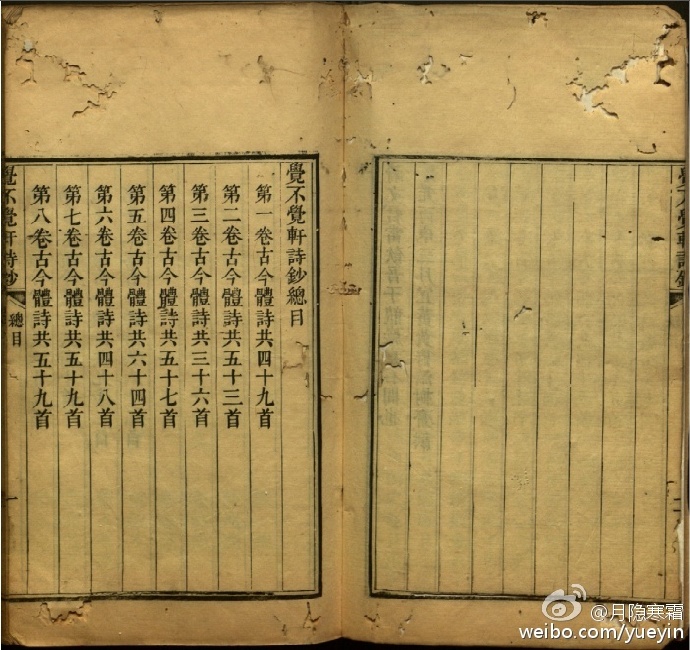 覺不覺軒詩鈔
二
覺不覺軒詩鈔總目
第一卷古今體詩共四十九首
第二卷古今體詩共五十三首
第三卷古今體詩共三十六首
第四卷古今體詩共五十七首
第五卷古今體詩共六十四首
第六卷古今體詩共四十八首
第七卷古今體詩共五十九首
第八卷古今體詩共五十九首
覺不覺軒詩鈔
總目
一
@月隐寒霜
weibo.com/yueyin